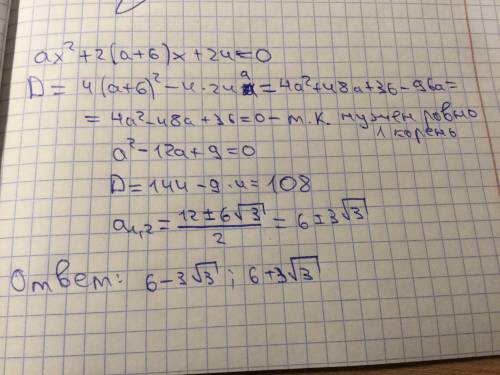 ax²+2(a+6)x+24=0
D = 4(a+6)²-4·24a = 4a²+48a+36-96a=
= 4a²-48a+36=0 - т.к. нужен ровно 1 корень
a²-12a+9=0
D=144-9·4=108
a₁,₂ = (12±6√3)/2 = 6±3√3
Ответ: 6-3√3; 6+3√3